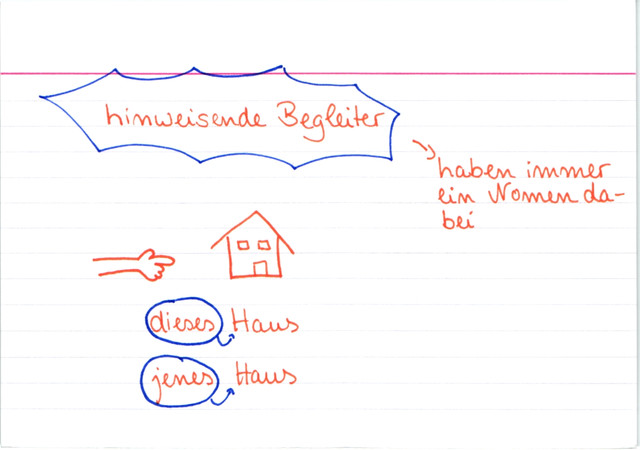 hinweisende Begleiter
haben immer
ein Nomen da-
bei
dieses Haus
jenes Haus